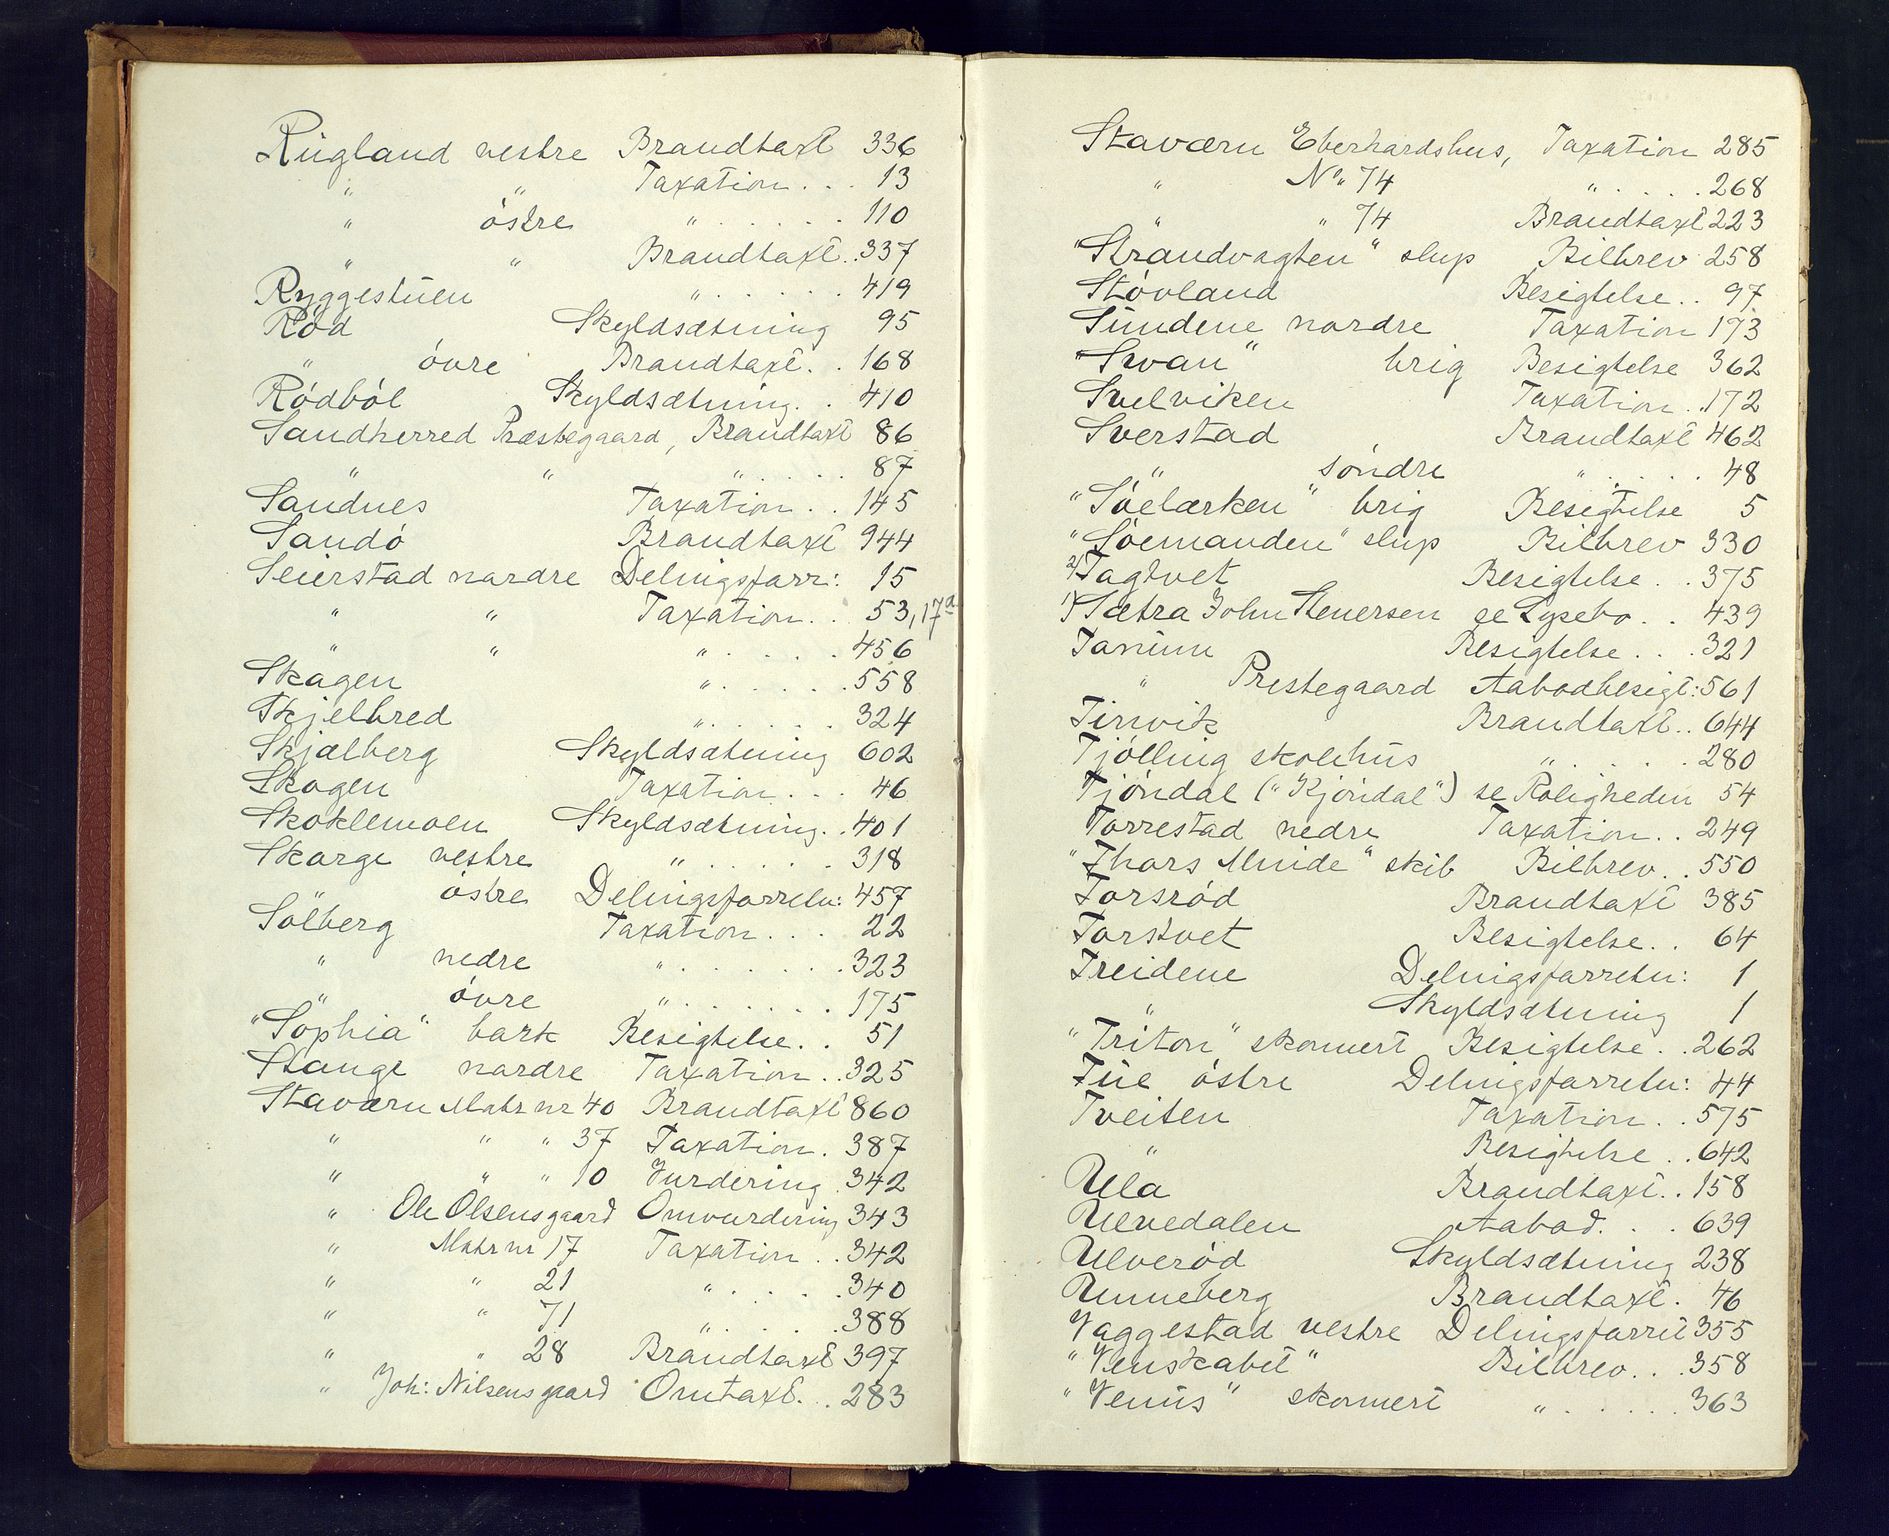 Rügland vestre Brandtaxt 336
" " Taxation . . . 13
" östre " . . . . . . 110
" " Brandtaxt . . 337
Ryggestüen " . . . . . . 419
Röd Skyldsætning 95
" övre Brandtaxt . . 168
Rödböl Skyldsætning . . 410
Sandherred Præstegaard, Brandtaxt 86
" " " . . . . . 87
Sandnes Taxation . . 145
Sandö Brandtaxt 944
Seierstad nordre Delingsforr: 15
" " Taxation . . 53, 17a
" " " . . . . . 456
Skagen " . . . . . . 558
Skjelbred " . . . . . . 324
Skjælberg Skyldsætning 602
Skogen Taxation . . . 46
Skoklemoen Skyldsætning . . 401
Skorge vestre " . . . . . . 318
östre Delingsforretn: 457
Sölberg Taxation . . . 22
" nedre " . . . . . . . 323
" övre " . . . . . . . 175
"Sophia" bark Besigtelse . . 51
Stange nordre Taxation . . 325
Staværn Matr nr 40 Brandtaxt 860
" " " 37 Taxation . 387
" " " 10 Vurdering . 342
" Ole Olsens gaard Omvurdering 343
" Matr nr 17 Taxation . . 342
" " 21 " . . . . . 340
" " 71 " . . . . . 388
" " 28 Brandtaxt 397
" Joh: Nilsens gaard Omtaxt . . . 283
Staværn Eberhardshus, Taxation 285
" No 74 " . . . . . 268
" " 74 Brandtaxt 223
"Strandvagten" slup Bilbrev 258
Stövland Besigtelse . . 97
Sündene nordre Taxation 173
"Svan" brig Besigtelse 362
Svelviken Taxation . . 172
Sverstad Brandtaxt 462
" söndre " . . . . . 48
"Söelærken" brig Besigtelse 5
"Söemanden" slup Bilbrev 330
2) Tagtvet Besigtelse . . 375
1) Sætra John Stenersen se Lysebo . . 439
Tanüm Besigtelse . . . 321
" Prestegaard Aabodbesigt: 561
Tinvik Brandtaxt . . 644
Tjölling skolehus " . . . . . . 280
Tjöndal ("Kjöndal") se Roligheden 54
Torrestad nedre Taxation . . 249
"Thors Minde" skib Bilbrev . . 550
Torsröd Brandtaxt 385
Torstvet Besigtelse . . 64
Treidene Delingsforretn: 1
" Skyldsætning 1
"Triton" skonnert Besigtelse . . 262
Tüe östre Delingsforretn: 44
Tveiten Taxation . . 575
" Besigtelse . . 642
Ula Brandtaxt . . 158
Ulvedalen Aabod . . . 639
Ulveröd Skyldsætning 238
Unneberg Brandtaxt . 46
Vaggestad vestre Delingsforret 355
"Venskabet" Bilbrev . . . 358
"Venüs" skonnert " . . . . . . 363